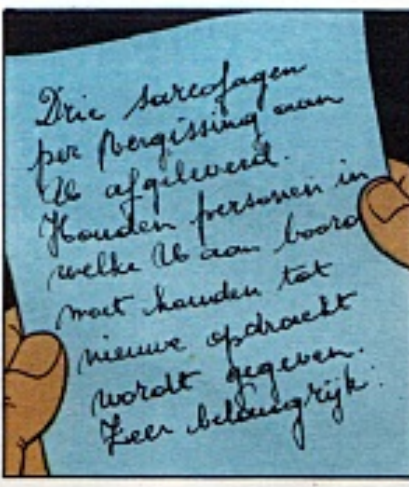 Drie sarcofagen
per vergissing aan
Ub afgeleverd.
Houden personen in
welke Ub aan boord
moet houden tot
nieuwe opdracht
wordt gegeven.
Zeer belangrijk.